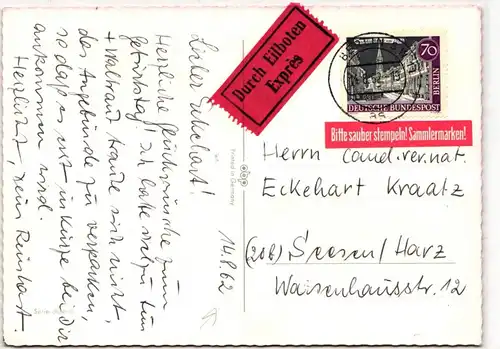 Lieber Eckehart!
Herzliche Glückwünsche zum
Geburtstag! Ich hatte
+ Waltraut
das Angebinde zu verpacken,
so daß es erst in Kürze bei Dir
ankommen wird.
Herzlichst, Dein Reinhart
14.9.62
Printed in Germany
Durch Eilboten
Exprès
70
BERLIN
DEUTSCHE BUNDESPOST
Bitte sauber stempeln! Sammlermarken!
Herrn Cand. rer. nat.
Eckehart Kraatz
(20b) Seesen/Harz
Waisenhausstr. 12